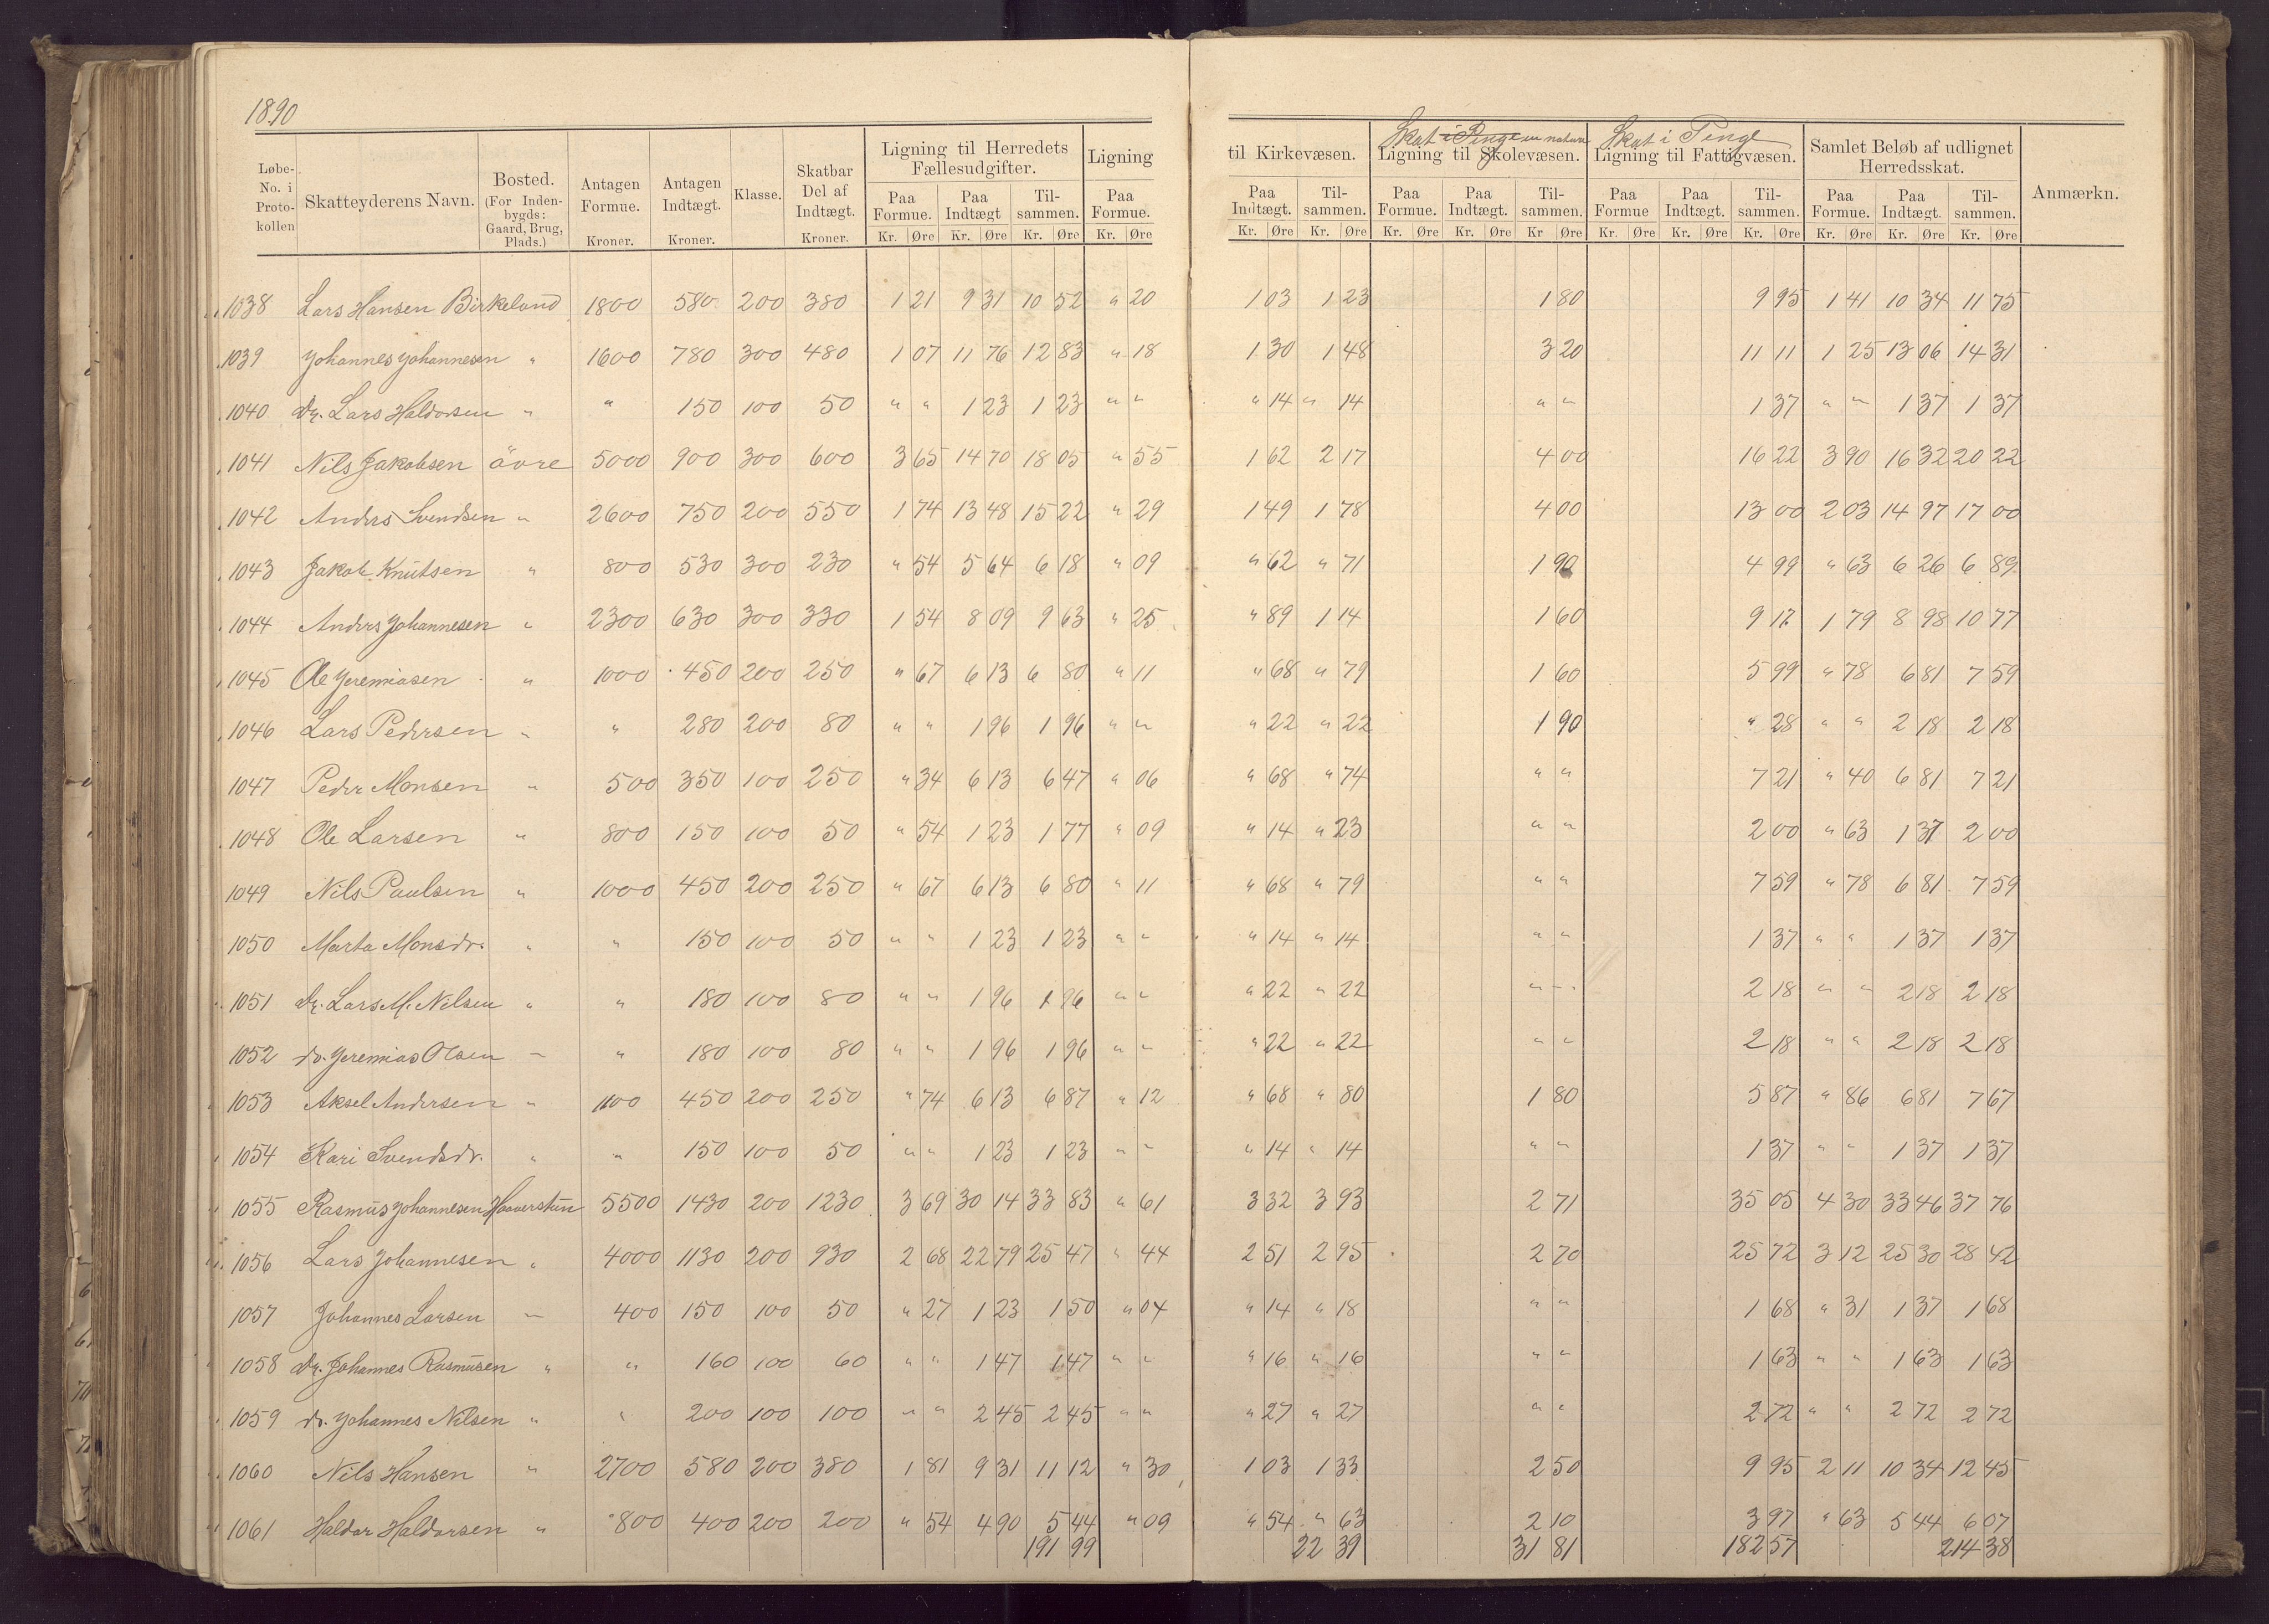 1890
Løbe-No. i Proto-kollen | Skatteyderens Navn. | Bosted. (For Inden-bygds: Gaard, Brug, Plads.) | Antagen Formue. Kroner. | Antagen Indtægt. Kroner. | Klasse. | Skatbar Del af Indtægt. Kroner. | Ligning til Herredets Fællesudgifter. Paa Formue. Kr. Øre | Paa Indtægt Kr. Øre | Til-sammen. Kr. Øre | Ligning Paa Formue. Kr. Øre | til Kirkevæsen. Paa Indtægt. Kr. Øre | Til-sammen. Kr. Øre | Skat i Penge in natura Ligning til Skolevæsen. Paa Formue. Kr. Øre | Paa Indtægt. Kr. Øre | Til-sammen. Kr Øre | Skat i Penge Ligning til Fattigvæsen. Paa Formue Kr. Øre | Paa Indtægt. Kr. Øre | Til-sammen. Kr. Øre | Samlet Beløb af udlignet Herredsskat. Paa Formue. Kr. Øre | Paa Indtægt. Kr. Øre | Til-sammen. Kr. Øre | Anmærkn.
1038 Lars Hansen Birkeland 1800 580 200 380 1 21 9 31 10 52 " 20 1 03 1 23 1 80 9 95 1 41 10 34 11 75
1039 Johannes Johannesen " 1600 780 300 480 1 07 11 76 12 83 " 18 1 30 1 48 3 20 11 11 1 25 13 06 14 31
1040 Dr. Lars Haldorsen " " 150 100 50 " " 1 23 1 23 " " " 14 " 14 " " 1 37 " " 1 37 1 37
1041 Nils Jakobsen övre 5000 900 300 600 3 65 14 70 18 05 " 55 1 62 2 17 4 00 16 22 3 90 16 32 20 22
1042 Anders Svendsen " 2600 750 200 550 1 74 13 48 15 22 " 29 1 49 1 78 4 00 13 00 2 03 14 97 17 00
1043 Jakob Knutsen " 800 530 300 230 " 54 5 64 6 18 " 09 " 62 " 71 1 90 4 99 " 63 6 26 6 89
1044 Anders Johannesen " 2300 630 300 330 1 54 8 09 9 63 " 25 " 89 1 14 1 60 9 17 1 79 8 98 10 77
1045 Ole Jeremiasen " 1000 450 200 250 " 67 6 13 6 80 " 11 " 68 " 79 1 60 5 99 " 78 6 81 7 59
1046 Lars Pedersen " " 280 200 80 " " 1 96 1 96 " " " 22 " 22 1 90 " 28 " " 2 18 2 18
1047 Peder Monsen " 500 350 100 250 " 34 6 13 6 47 " 06 " 68 " 74 " " 7 21 " 40 6 81 7 21
1048 Ole Larsen " 800 150 100 50 " 54 1 23 1 77 " 09 " 14 " 23 " " 2 00 " 63 1 37 2 00
1049 Nils Paulsen " 1000 450 200 250 " 67 6 13 6 80 " 11 " 68 " 79 " " 7 59 " 78 6 81 7 59
1050 Marta Monsdr. " " 150 100 50 " " 1 23 1 23 " " " 14 " 14 " " 1 37 " " 1 37 1 37
1051 Dr. Lars M. Nilsen " " 180 100 80 " " 1 96 1 96 " " " 22 " 22 " " 2 18 " " 2 18 2 18
1052 dr. Jeremias Olsen " " 180 100 80 " " 1 96 1 96 " " " 22 " 22 " " 2 18 " " 2 18 2 18
1053 Aksel Andersen " 1100 450 200 250 " 74 6 13 6 87 " 12 " 68 " 80 1 80 5 87 " 86 6 81 7 67
1054 Kari Svendsdr. " " 150 100 50 " " 1 23 1 23 " " " 14 " 14 " " 1 37 " " 1 37 1 37
1055 Rasmus Johannesen Haaverstun 5500 1430 200 1230 3 69 30 14 33 83 " 61 3 32 3 93 2 71 35 05 4 30 33 46 37 76
1056 Lars Johannesen " 4000 1130 200 930 2 68 22 79 25 47 " 44 2 51 2 95 2 70 25 72 3 12 25 30 28 42
1057 Johannes Larsen " 400 150 100 50 " 27 1 23 1 50 " 04 " 14 " 18 " " 1 68 " 31 1 37 1 68
1058 Dr. Johannes Rasmusen " " 160 100 60 " " 1 47 1 47 " " " 16 " 16 " " 1 63 " " 1 63 1 63
1059 dr. Johannes Nilsen " " 200 100 100 " " 2 45 2 45 " " " 27 " 27 " " 2 72 " " 2 72 2 72
1060 Nils Hansen " 2700 580 200 380 1 81 9 31 11 12 " 30 1 03 1 33 2 50 9 95 2 11 10 34 12 45
1061 Haldor Haldorsen " 800 400 200 200 " 54 4 90 5 44 " 09 " 54 " 63 2 10 3 97 " 63 5 44 6 07
191 99 22 39 31 81 182 57 214 38